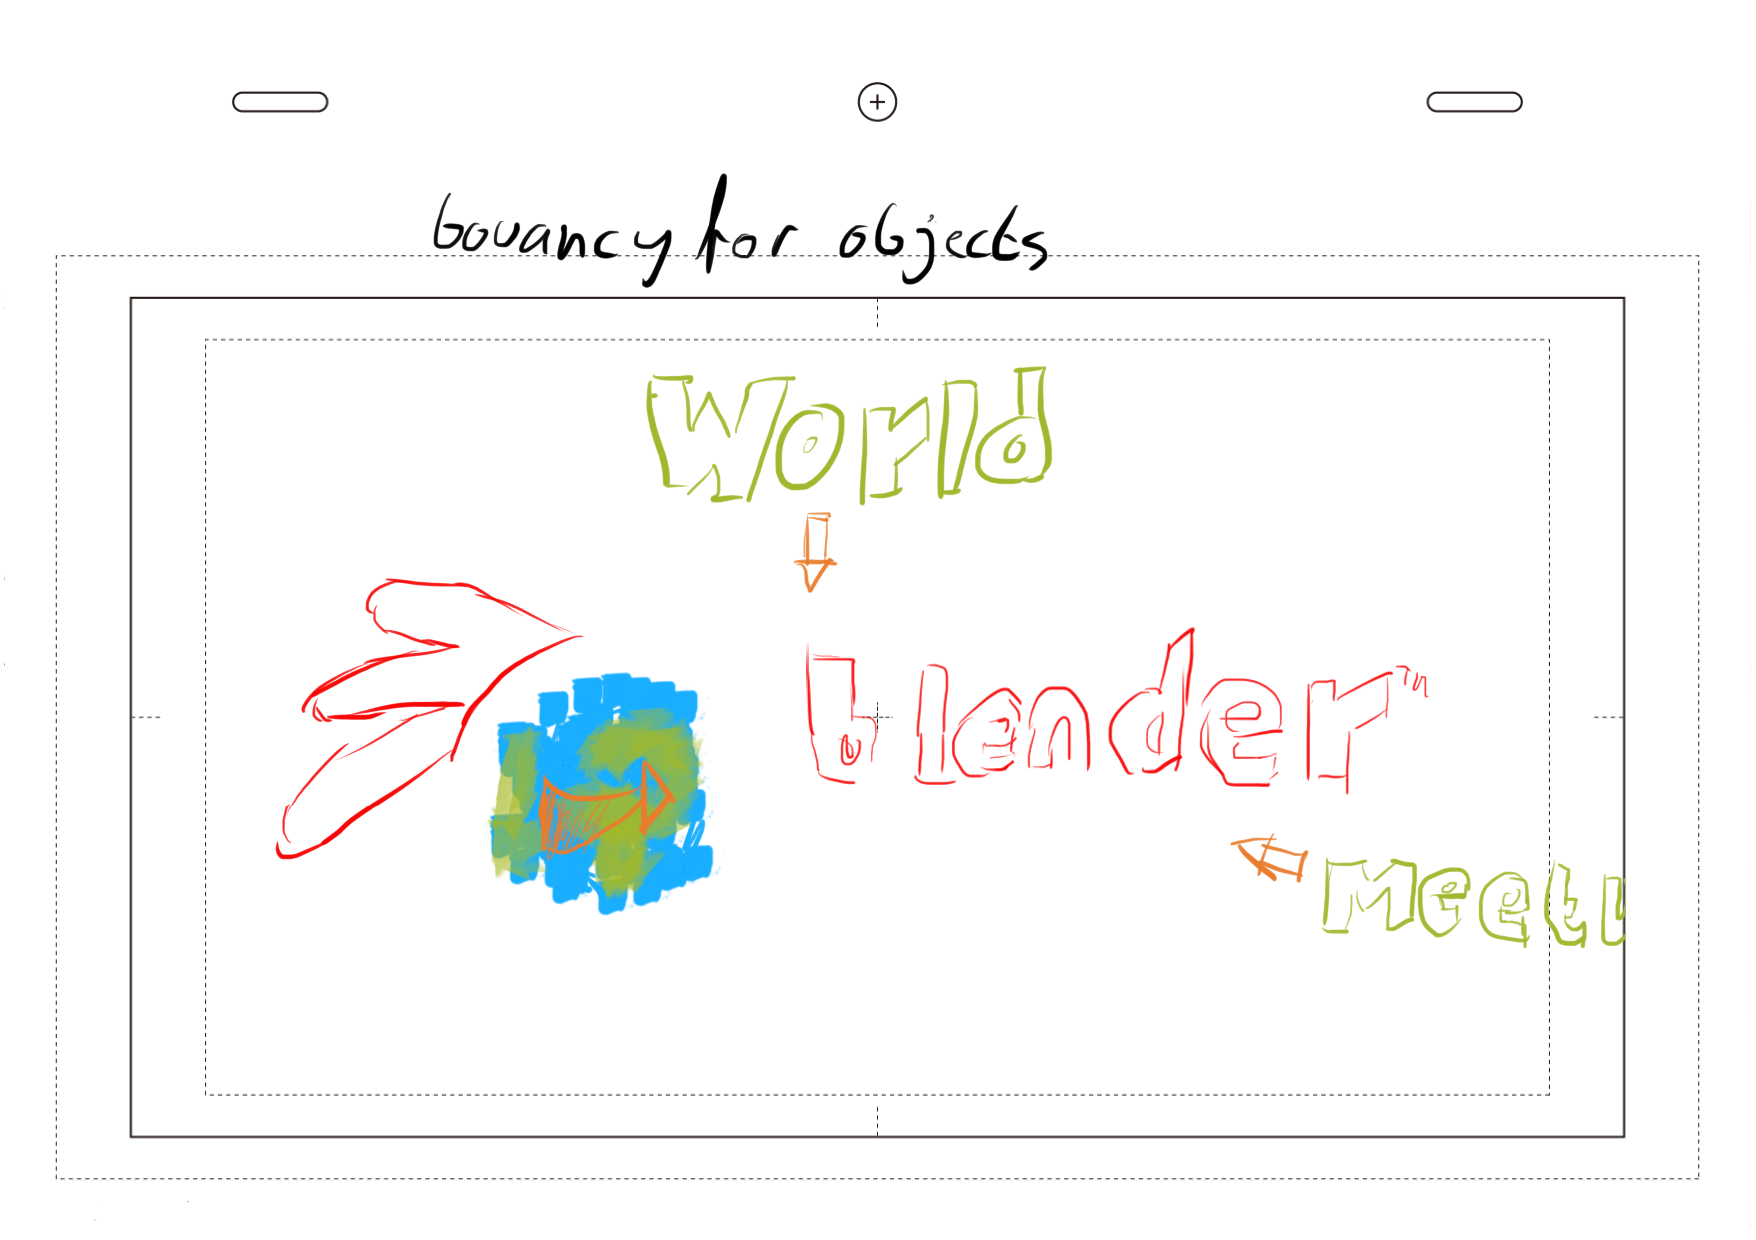 bouancy for objects
World
blender™
Meetu